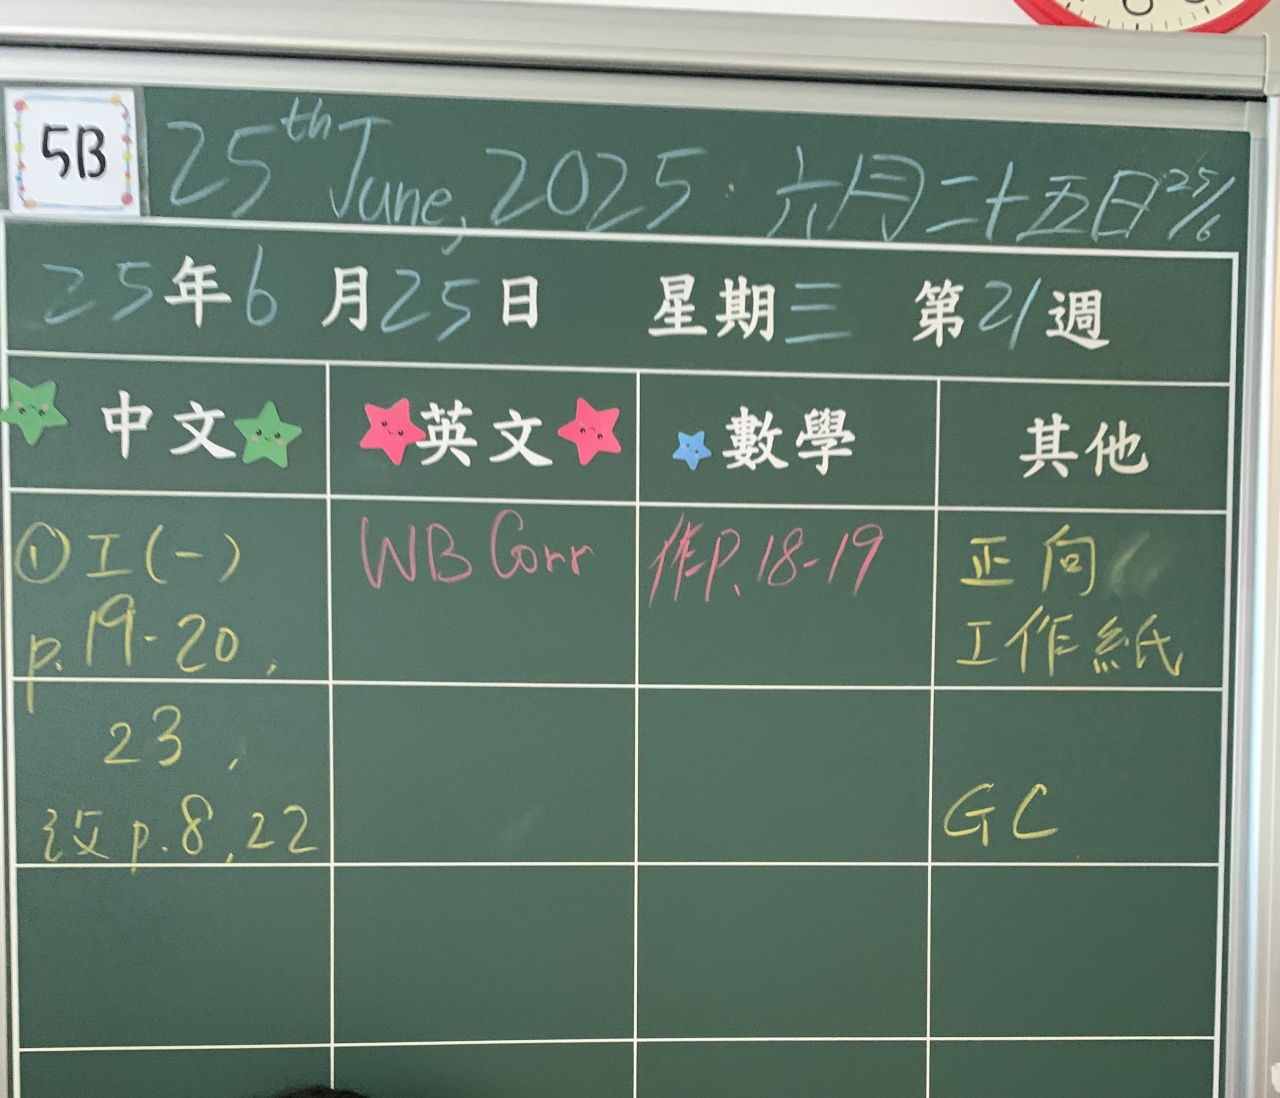 5B
25th June, 2025. 六月二十五日 25/6
25年6月25日 星期三 第21週
中文 英文 數學 其他
①工(一)
p.19-20,
23,
改p.8,22
WB Corr
作P.18-19
正向
工作紙
GC